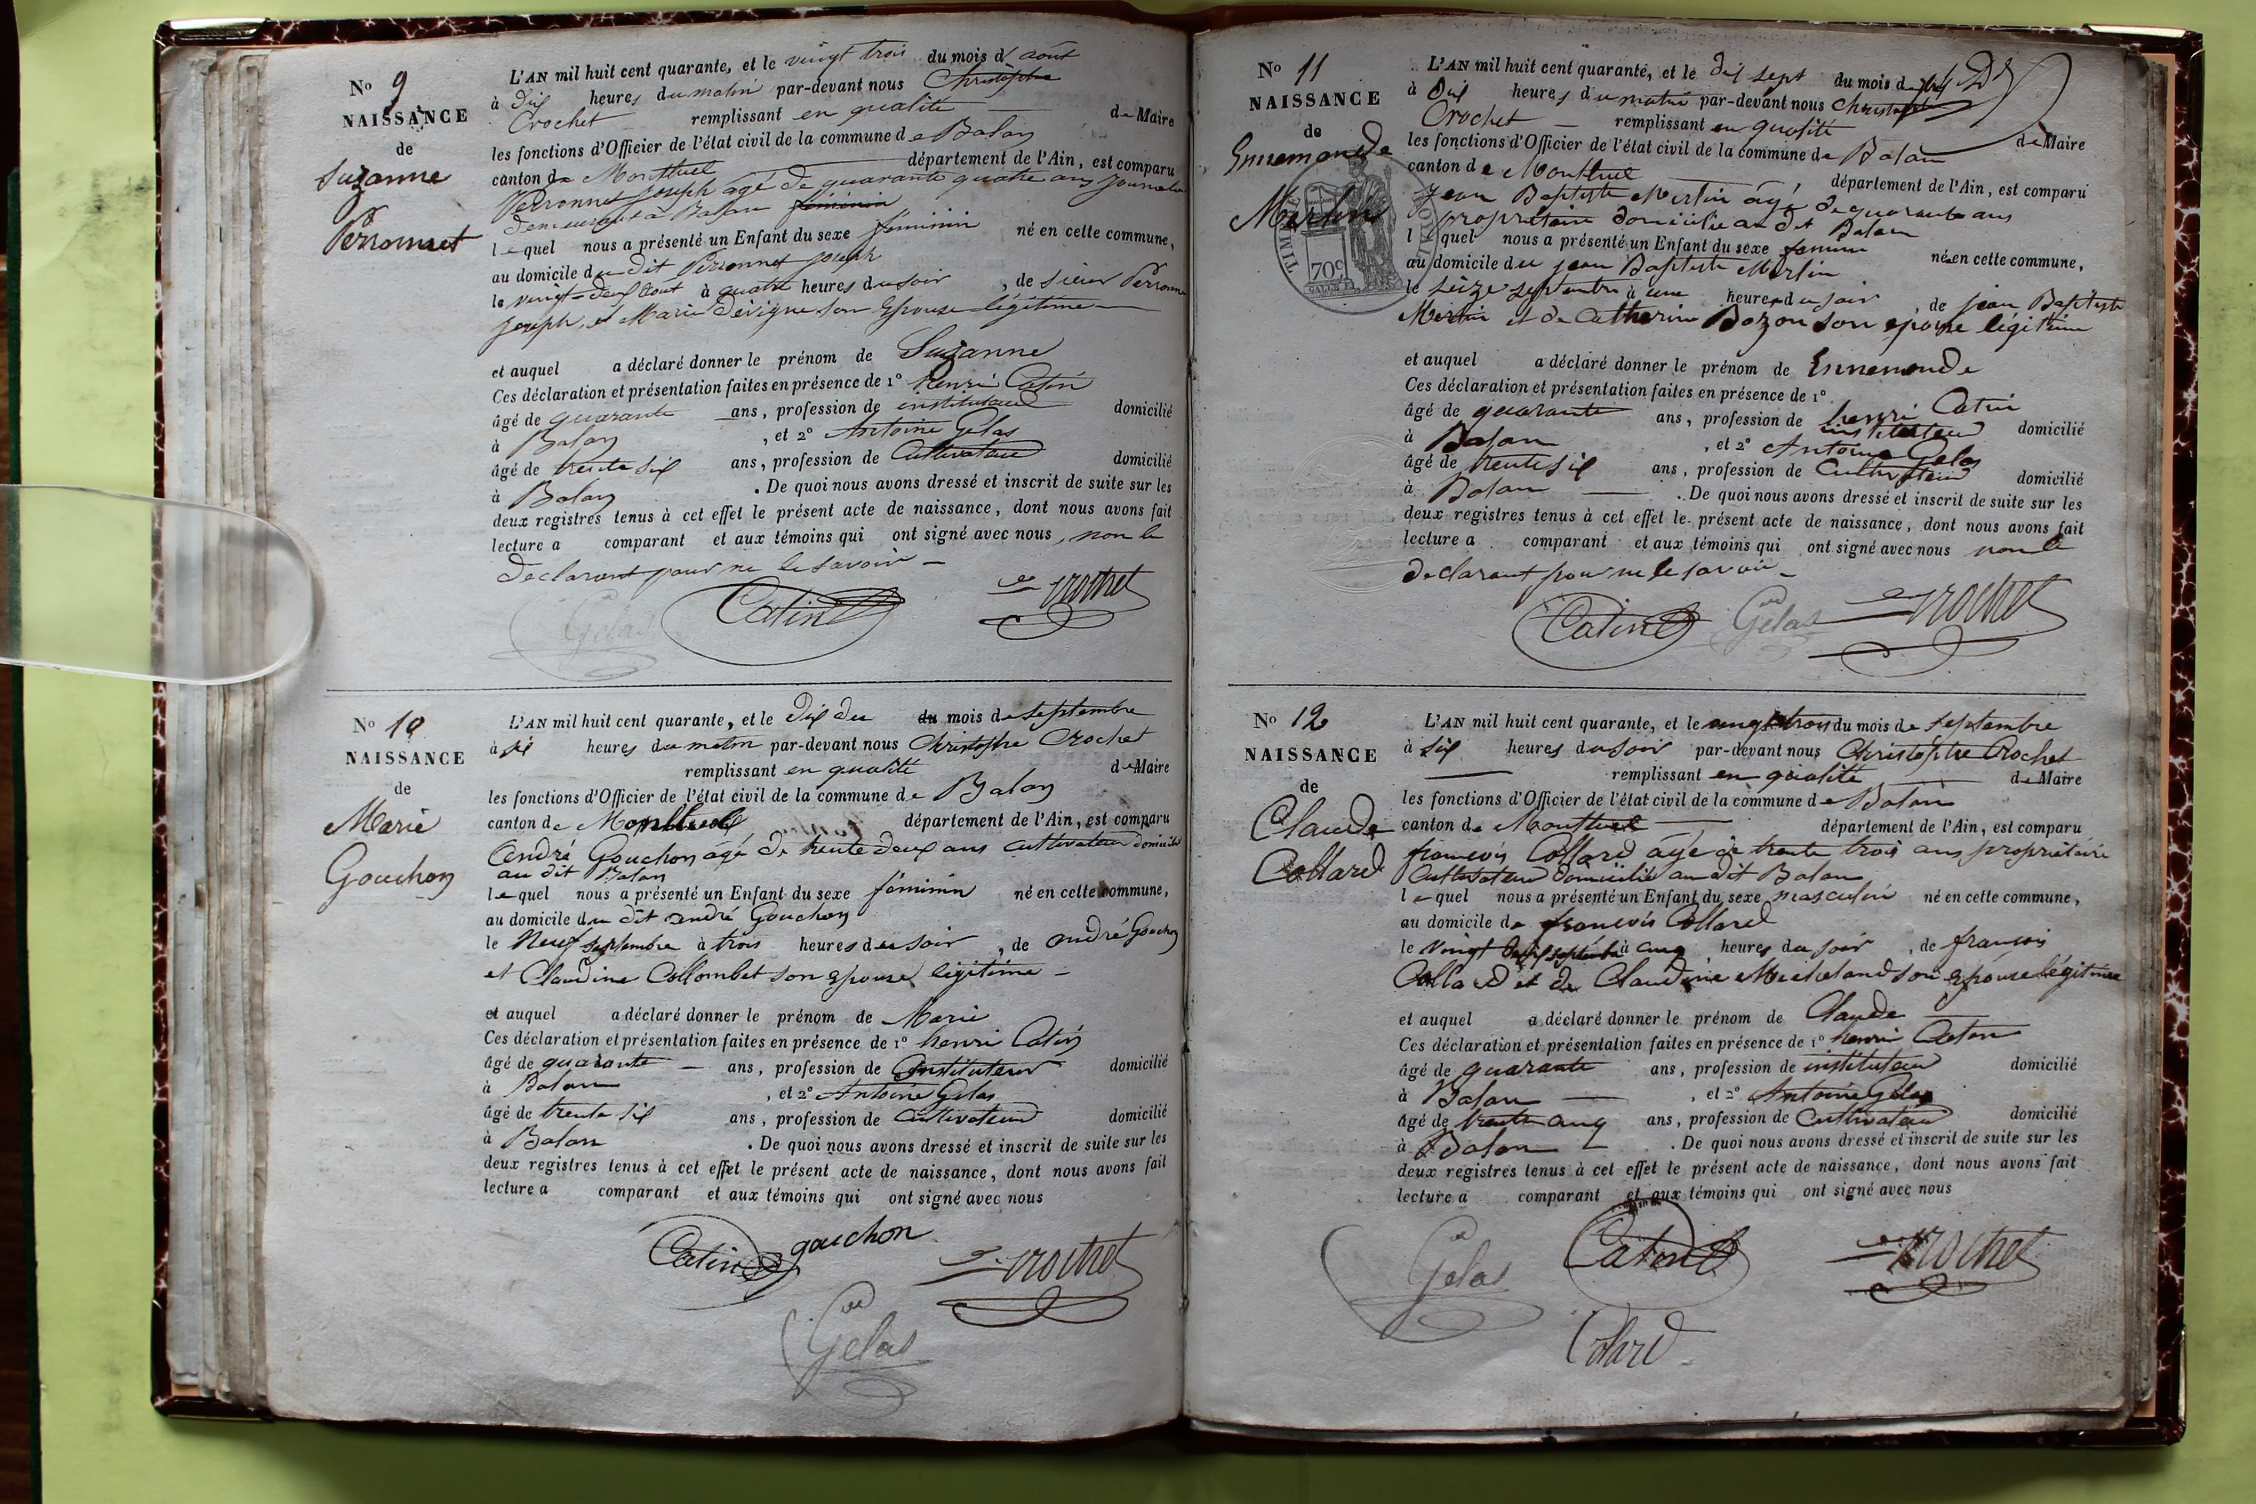 No 9
NAISSANCE
de
Suzanne
Perronnet
L'AN mil huit cent quarante, et le vingt trois du mois d'août
à dix heures du matin par-devant nous Christophe
Crochet remplissant en qualité de Maire
les fonctions d'Officier de l'état civil de la commune de Balan
canton de Montluel département de l'Ain, est comparu
Perronnet Joseph âgé de quarante quatre ans journalier
demeurant à Balan feminin
lequel nous a présenté un Enfant du sexe féminin né en cette commune,
au domicile du dit Perronnet Joseph
le vingt-deux aout à quatre heures du soir, de sieur Perronnet
Joseph, et Marie Dévigne son Epouse légitime
et auquel a déclaré donner le prénom de Suzanne
Ces déclaration et présentation faites en présence de 1° henri Catin
âgé de quarante ans, profession de instituteur domicilié
à Balan, et 2° Antoine Gelas
âgé de trente six ans, profession de Cultivateur domicilié
à Balan. De quoi nous avons dressé et inscrit de suite sur les
deux registres tenus à cet effet le présent acte de naissance, dont nous avons fait
lecture a comparant et aux témoins qui ont signé avec nous, non le
declarant pour ne le savoir
Gelas Catin Crochet
No 10
NAISSANCE
de
Marie
Gouchon
L'AN mil huit cent quarante, et le dix du du mois de septembre
à six heures du matin par-devant nous Christophe Crochet
remplissant en qualité de Maire
les fonctions d'Officier de l'état civil de la commune de Balan
canton de Montluel département de l'Ain, est comparu
André Gouchon âgé de trente deux ans cultivateur domicilié
au dit Balan
lequel nous a présenté un Enfant du sexe féminin né en cette commune,
au domicile du dit andré Gouchon
le Neuf septembre à trois heures du soir, de andré Gouchon
et Claudine Collombet son epouse légitime
et auquel a déclaré donner le prénom de Marie
Ces déclaration et présentation faites en présence de 1° henri Catin
âgé de quarante ans, profession de Instituteur domicilié
à Balan, et 2° Antoine Gelas
âgé de trente six ans, profession de Cultivateur domicilié
à Balan. De quoi nous avons dressé et inscrit de suite sur les
deux registres tenus à cet effet le présent acte de naissance, dont nous avons fait
lecture a comparant et aux témoins qui ont signé avec nous
Catin gouchon Crochet
Gelas
No 11
NAISSANCE
de
Ennemonde
Merlin
TIMBRE ROYAL
70c
L'AN mil huit cent quarante, et le dix sept du mois de
à dix heures du matin par-devant nous Christophe
Crochet remplissant en qualité de Maire
les fonctions d'Officier de l'état civil de la commune de Balan
canton de Montluel département de l'Ain, est comparu
Jean Baptiste Merlin âgé de quarante ans
proprietaire domicilié au dit Balan
lequel nous a présenté un Enfant du sexe feminin née en cette commune,
au domicile du jean Baptiste Merlin
le seize septembre à une heure du soir, de jean Baptiste
Merlin et de Catherine Bozon son epouse légitime
et auquel a déclaré donner le prénom de Ennemonde
Ces déclaration et présentation faites en présence de 1° henri Catin
âgé de quarante ans, profession de instituteur domicilié
à Balan, et 2° Antoine Gelas
âgé de trente six ans, profession de Cultivateur domicilié
à Balan. De quoi nous avons dressé et inscrit de suite sur les
deux registres tenus à cet effet le présent acte de naissance, dont nous avons fait
lecture a comparant et aux témoins qui ont signé avec nous non le
declarant pour ne le savoir
Catin Gelas Crochet
No 12
NAISSANCE
de
Claude
Collard
L'AN mil huit cent quarante, et le vingt trois du mois de septembre
à six heures du soir par-devant nous Christophe Crochet
remplissant en qualité de Maire
les fonctions d'Officier de l'état civil de la commune de Balan
canton de Montluel département de l'Ain, est comparu
françois Collard âgé de trente trois ans propriétaire
Cultivateur domicilié au dit Balan
lequel nous a présenté un Enfant du sexe masculin né en cette commune,
au domicile de françois Collard
le vingt deux septembre à cinq heures du soir, de françois
Collard et de Claudine Micheland son epouse légitime
et auquel a déclaré donner le prénom de Claude
Ces déclaration et présentation faites en présence de 1° henri Catin
âgé de quarante ans, profession de instituteur domicilié
à Balan, et 2° Antoine Gelas
âgé de trente cinq ans, profession de Cultivateur domicilié
à Balan. De quoi nous avons dressé et inscrit de suite sur les
deux registres tenus à cet effet le présent acte de naissance, dont nous avons fait
lecture a comparant et aux témoins qui ont signé avec nous
Gelas Catin Crochet
Colard